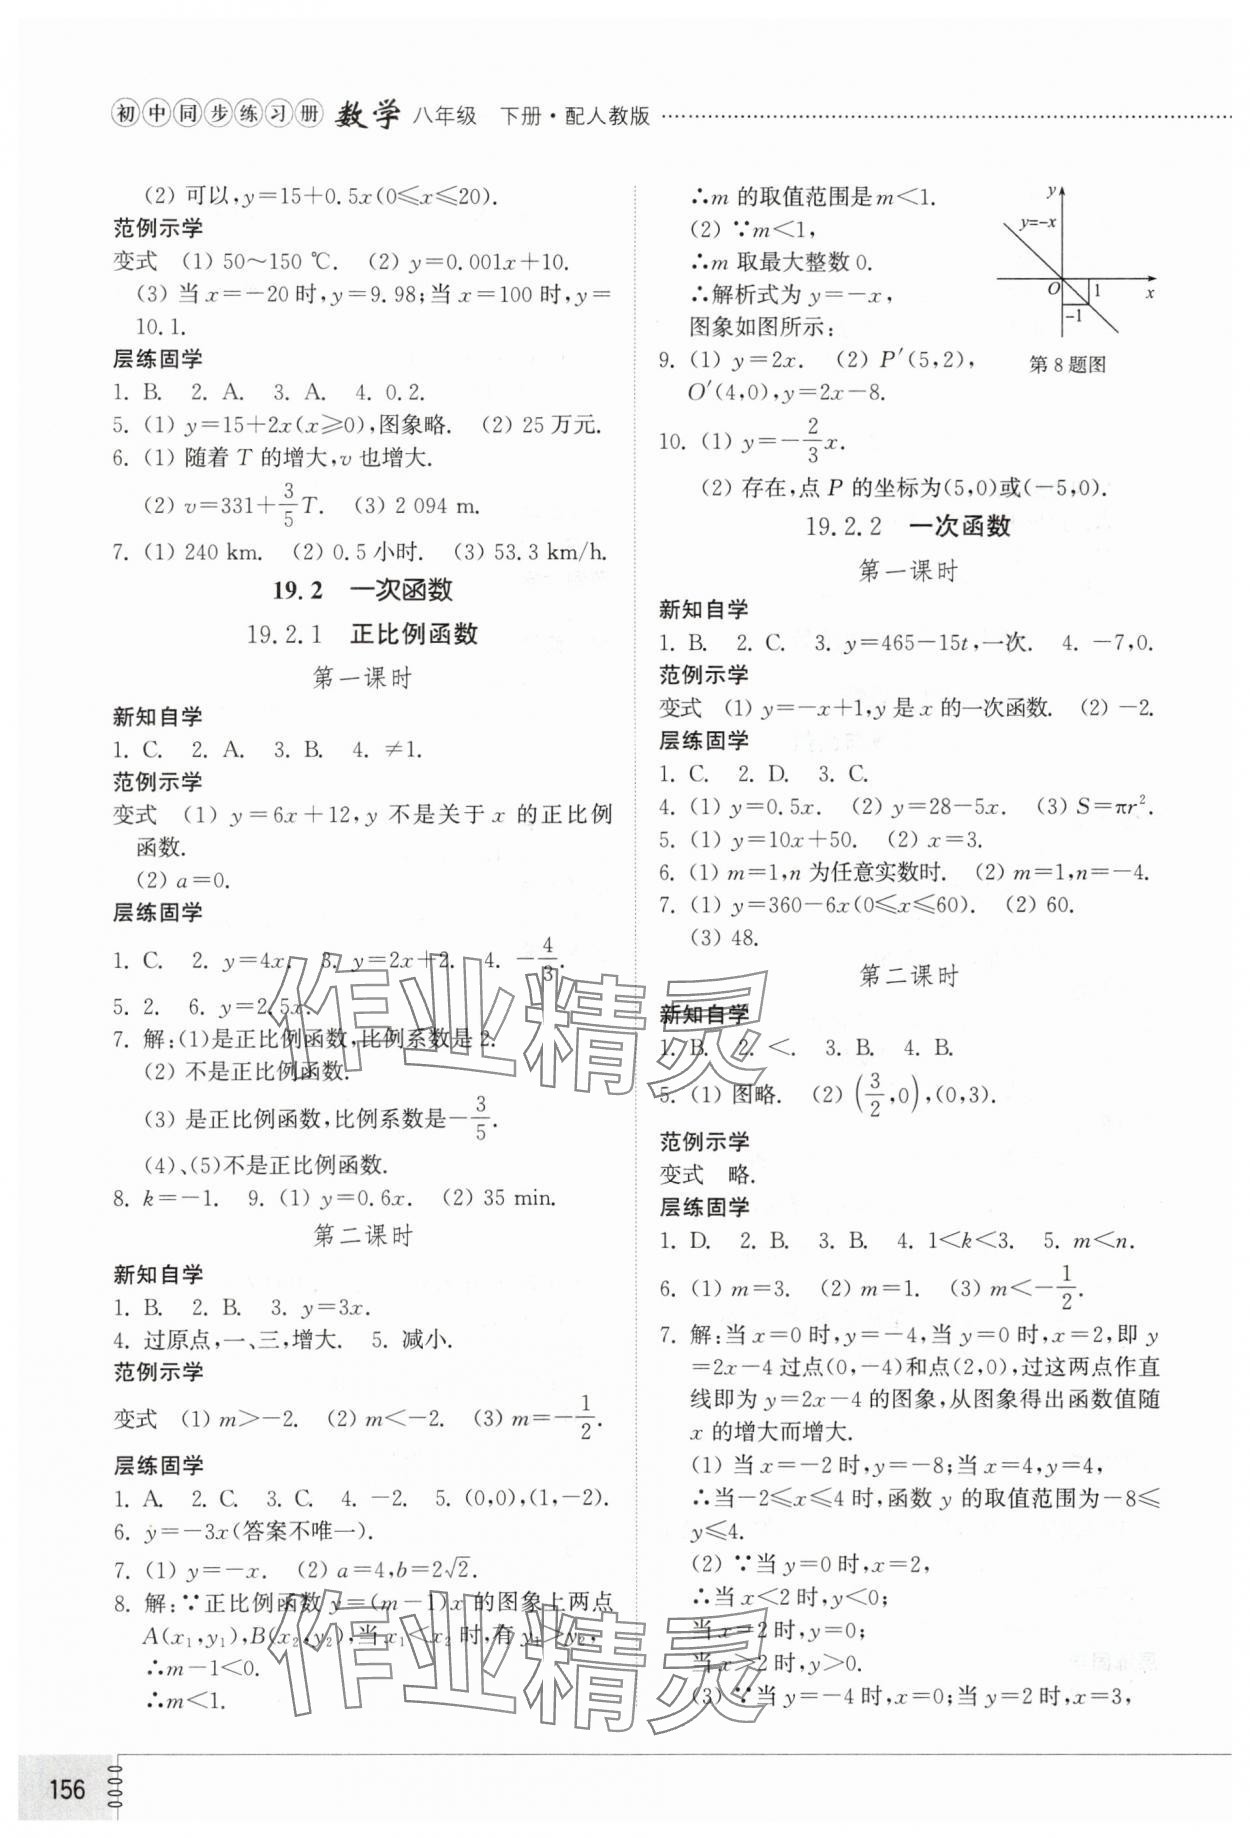 初中同步练习册 数学 八年级 下册·配人教版
(2) 可以,y=15+0.5x(0≤x≤20).
范例示学
变式 (1) 50~150 ℃. (2) y=0.001x+10.
(3) 当 x=-20 时,y=9.98;当 x=100 时,y=
10.1.
层练固学
1. B. 2. A. 3. A. 4. 0.2.
5. (1) y=15+2x(x≥0),图象略. (2) 25 万元.
6. (1) 随着 T 的增大,v 也增大.
(2) v=331+3/5 T. (3) 2 094 m.
7. (1) 240 km. (2) 0.5 小时. (3) 53.3 km/h.
19.2 一次函数
19.2.1 正比例函数
第一课时
新知自学
1. C. 2. A. 3. B. 4. ≠1.
范例示学
变式 (1) y=6x+12,y 不是关于 x 的正比例
函数.
(2) a=0.
层练固学
1. C. 2. y=4x. 3. y=2x+2. 4. -4/3.
5. 2. 6. y=2.5x.
7. 解:(1)是正比例函数,比例系数是2.
(2) 不是正比例函数.
(3) 是正比例函数,比例系数是-3/5.
(4)、(5)不是正比例函数.
8. k=-1. 9. (1) y=0.6x. (2) 35 min.
第二课时
新知自学
1. B. 2. B. 3. y=3x.
4. 过原点,一、三,增大. 5. 减小.
范例示学
变式 (1) m>-2. (2) m<-2. (3) m=-1/2.
层练固学
1. A. 2. C. 3. C. 4. -2. 5. (0,0),(1,-2).
6. y=-3x(答案不唯一).
7. (1) y=-x. (2) a=4,b=2√2.
8. 解:∵正比例函数 y=(m-1)x 的图象上两点
A(x₁,y₁),B(x₂,y₂),当 x₁<x₂ 时,有 y₁>y₂,
∴m-1<0.
∴m<1.
∴m 的取值范围是 m<1.
(2) ∵m<1,
∴m 取最大整数 0.
∴解析式为 y=-x,
图象如图所示:
y
y=-x
O
1
x
-1
第 8 题图
9. (1) y=2x. (2) P′(5,2),
O′(4,0),y=2x-8.
10. (1) y=-2/3 x.
(2) 存在,点 P 的坐标为(5,0)或(-5,0).
19.2.2 一次函数
第一课时
新知自学
1. B. 2. C. 3. y=465-15t,一次. 4. -7,0.
范例示学
变式 (1) y=-x+1,y 是 x 的一次函数. (2) -2.
层练固学
1. C. 2. D. 3. C.
4. (1) y=0.5x. (2) y=28-5x. (3) S=πr².
5. (1) y=10x+50. (2) x=3.
6. (1) m=1,n 为任意实数时. (2) m=1,n=-4.
7. (1) y=360-6x(0≤x≤60). (2) 60.
(3) 48.
第二课时
新知自学
1. B. 2. <. 3. B. 4. B.
5. (1) 图略. (2) (3/2,0),(0,3).
范例示学
变式 略.
层练固学
1. D. 2. B. 3. B. 4. 1<k<3. 5. m<n.
6. (1) m=3. (2) m=1. (3) m<-1/2.
7. 解:当 x=0 时,y=-4,当 y=0 时,x=2,即 y
=2x-4 过点(0,-4)和点(2,0),过这两点作直
线即为 y=2x-4 的图象,从图象得出函数值随
x 的增大而增大.
(1) 当 x=-2 时,y=-8;当 x=4,y=4,
∴当-2≤x≤4 时,函数 y 的取值范围为-8≤
y≤4.
(2) ∵当 y=0 时,x=2,
∴当 x<2 时,y<0;
当 x=2 时,y=0;
当 x>2 时,y>0.
(3) ∵当 y=-4 时,x=0;当 y=2 时,x=3,
156
作业精灵
作业精灵